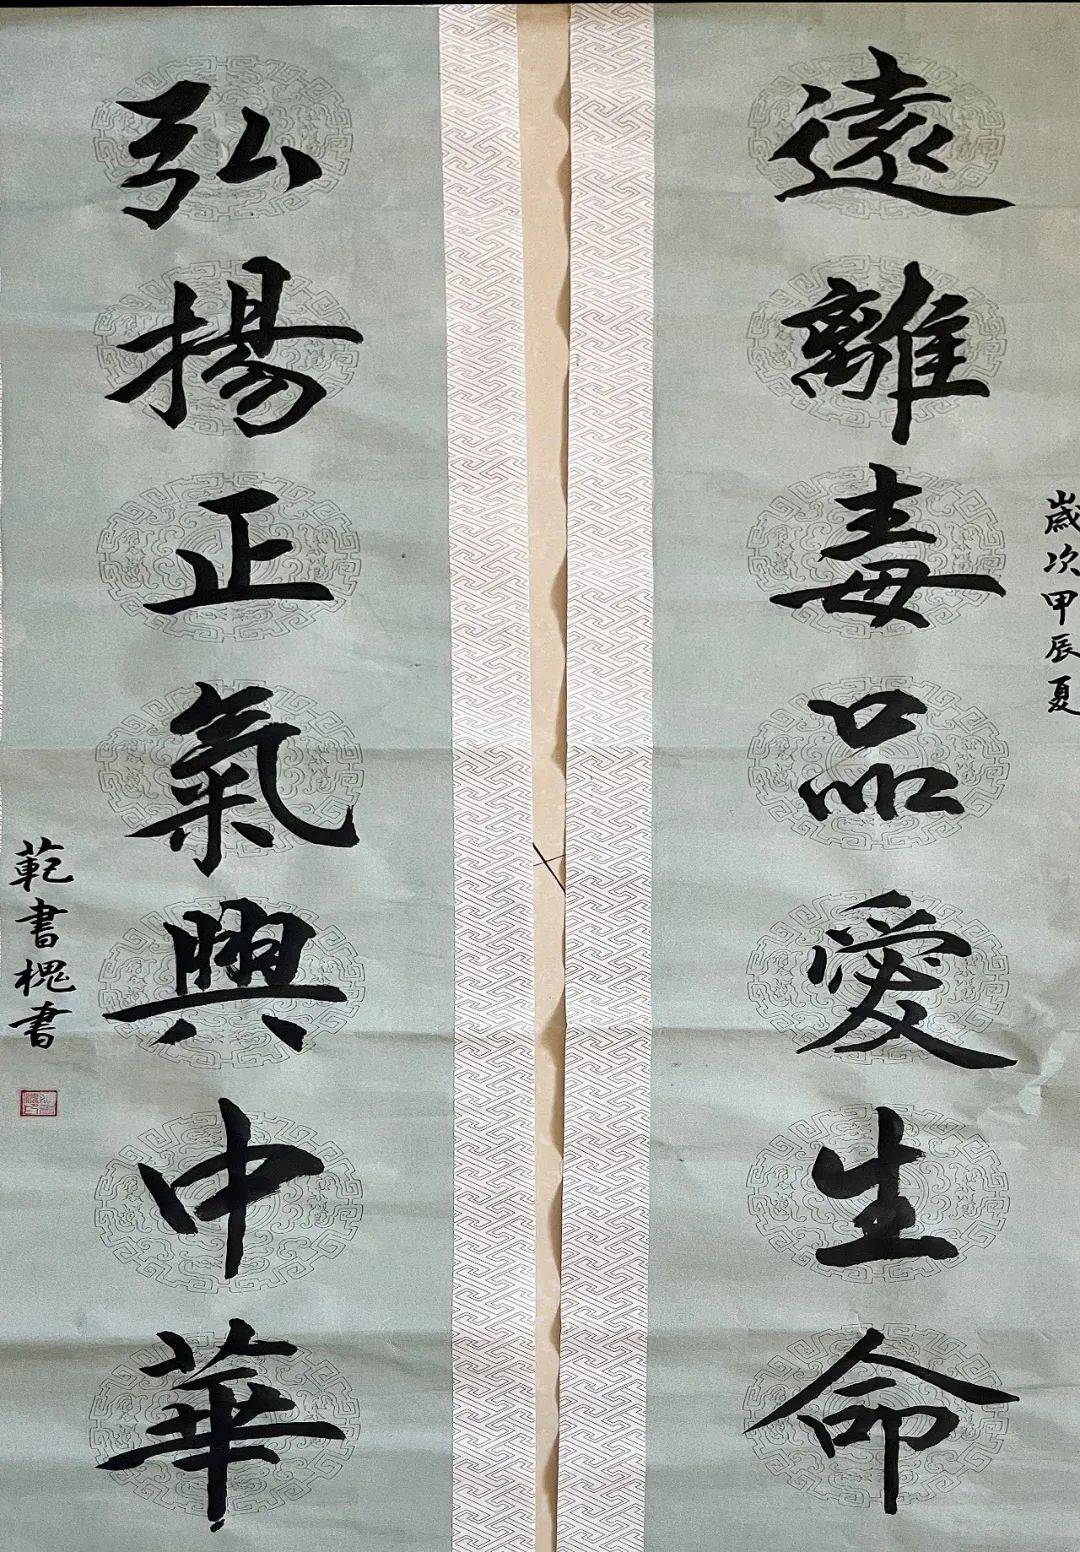 歲次甲辰夏
遠離毒品愛生命
弘揚正氣興中華
範書槐書